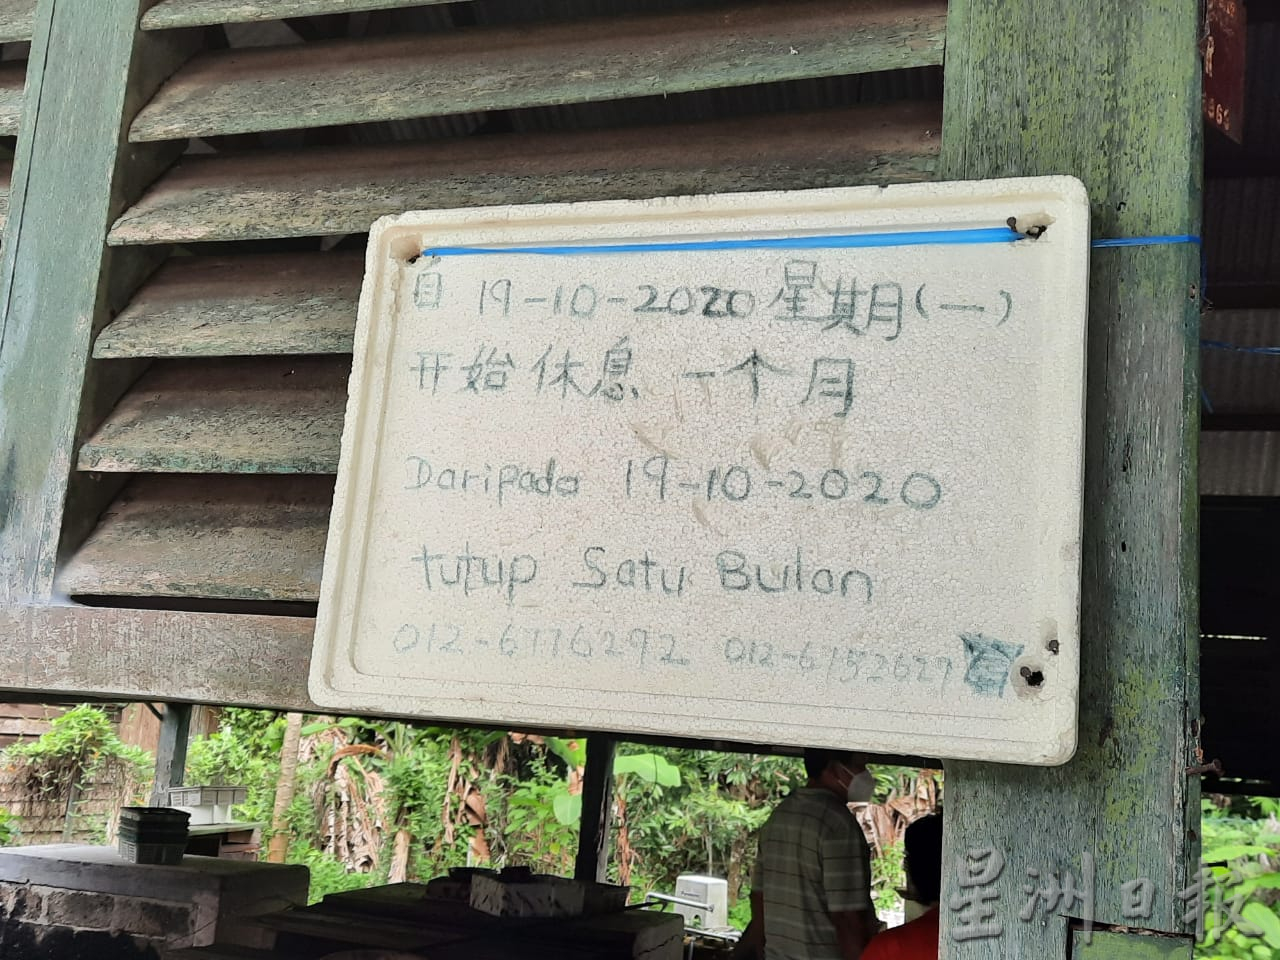 自 19-10-2020 星期月(一)
开始休息 一个月
Daripada 19-10-2020
tutup Satu Bulan
012-6776292 012-6152627
星洲日報